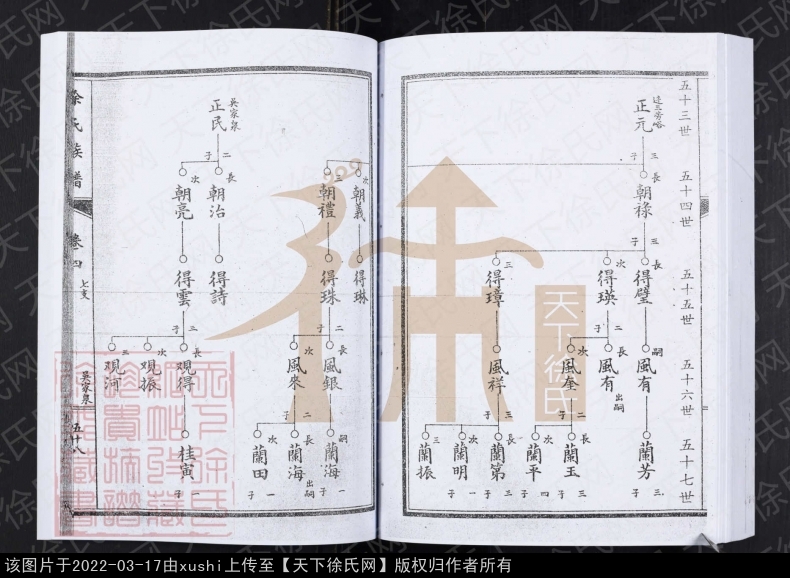 五十三世
五十四世
五十五世
五十六世
五十七世
正元
三子
長
朝祿
三子
長
得璧
次
得瑛
三
得璋
嗣
風有
二子
長
風有
出嗣
次
風奎
風祥
蘭芳
三子
二子
長
蘭玉
三子
次
蘭平
四子
三子
長
蘭第
三子
次
蘭明
一子
三
蘭振
次
朝義
得琳
三
朝禮
得珠
二子
長
風銀
次
風來
嗣
蘭海
一子
二子
長
蘭海
出嗣
次
蘭田
一子
吳家泉
正民
二子
長
朝治
得詩
次
朝亮
得雲
三子
長
观得
次
观振
三
观河
桂寅
一子
徐氏族譜
卷四
七支
吳家泉
五十八
天下徐氏
天下徐氏网
该图片于2022-03-17由xushi上传至【天下徐氏网】版权归作者所有